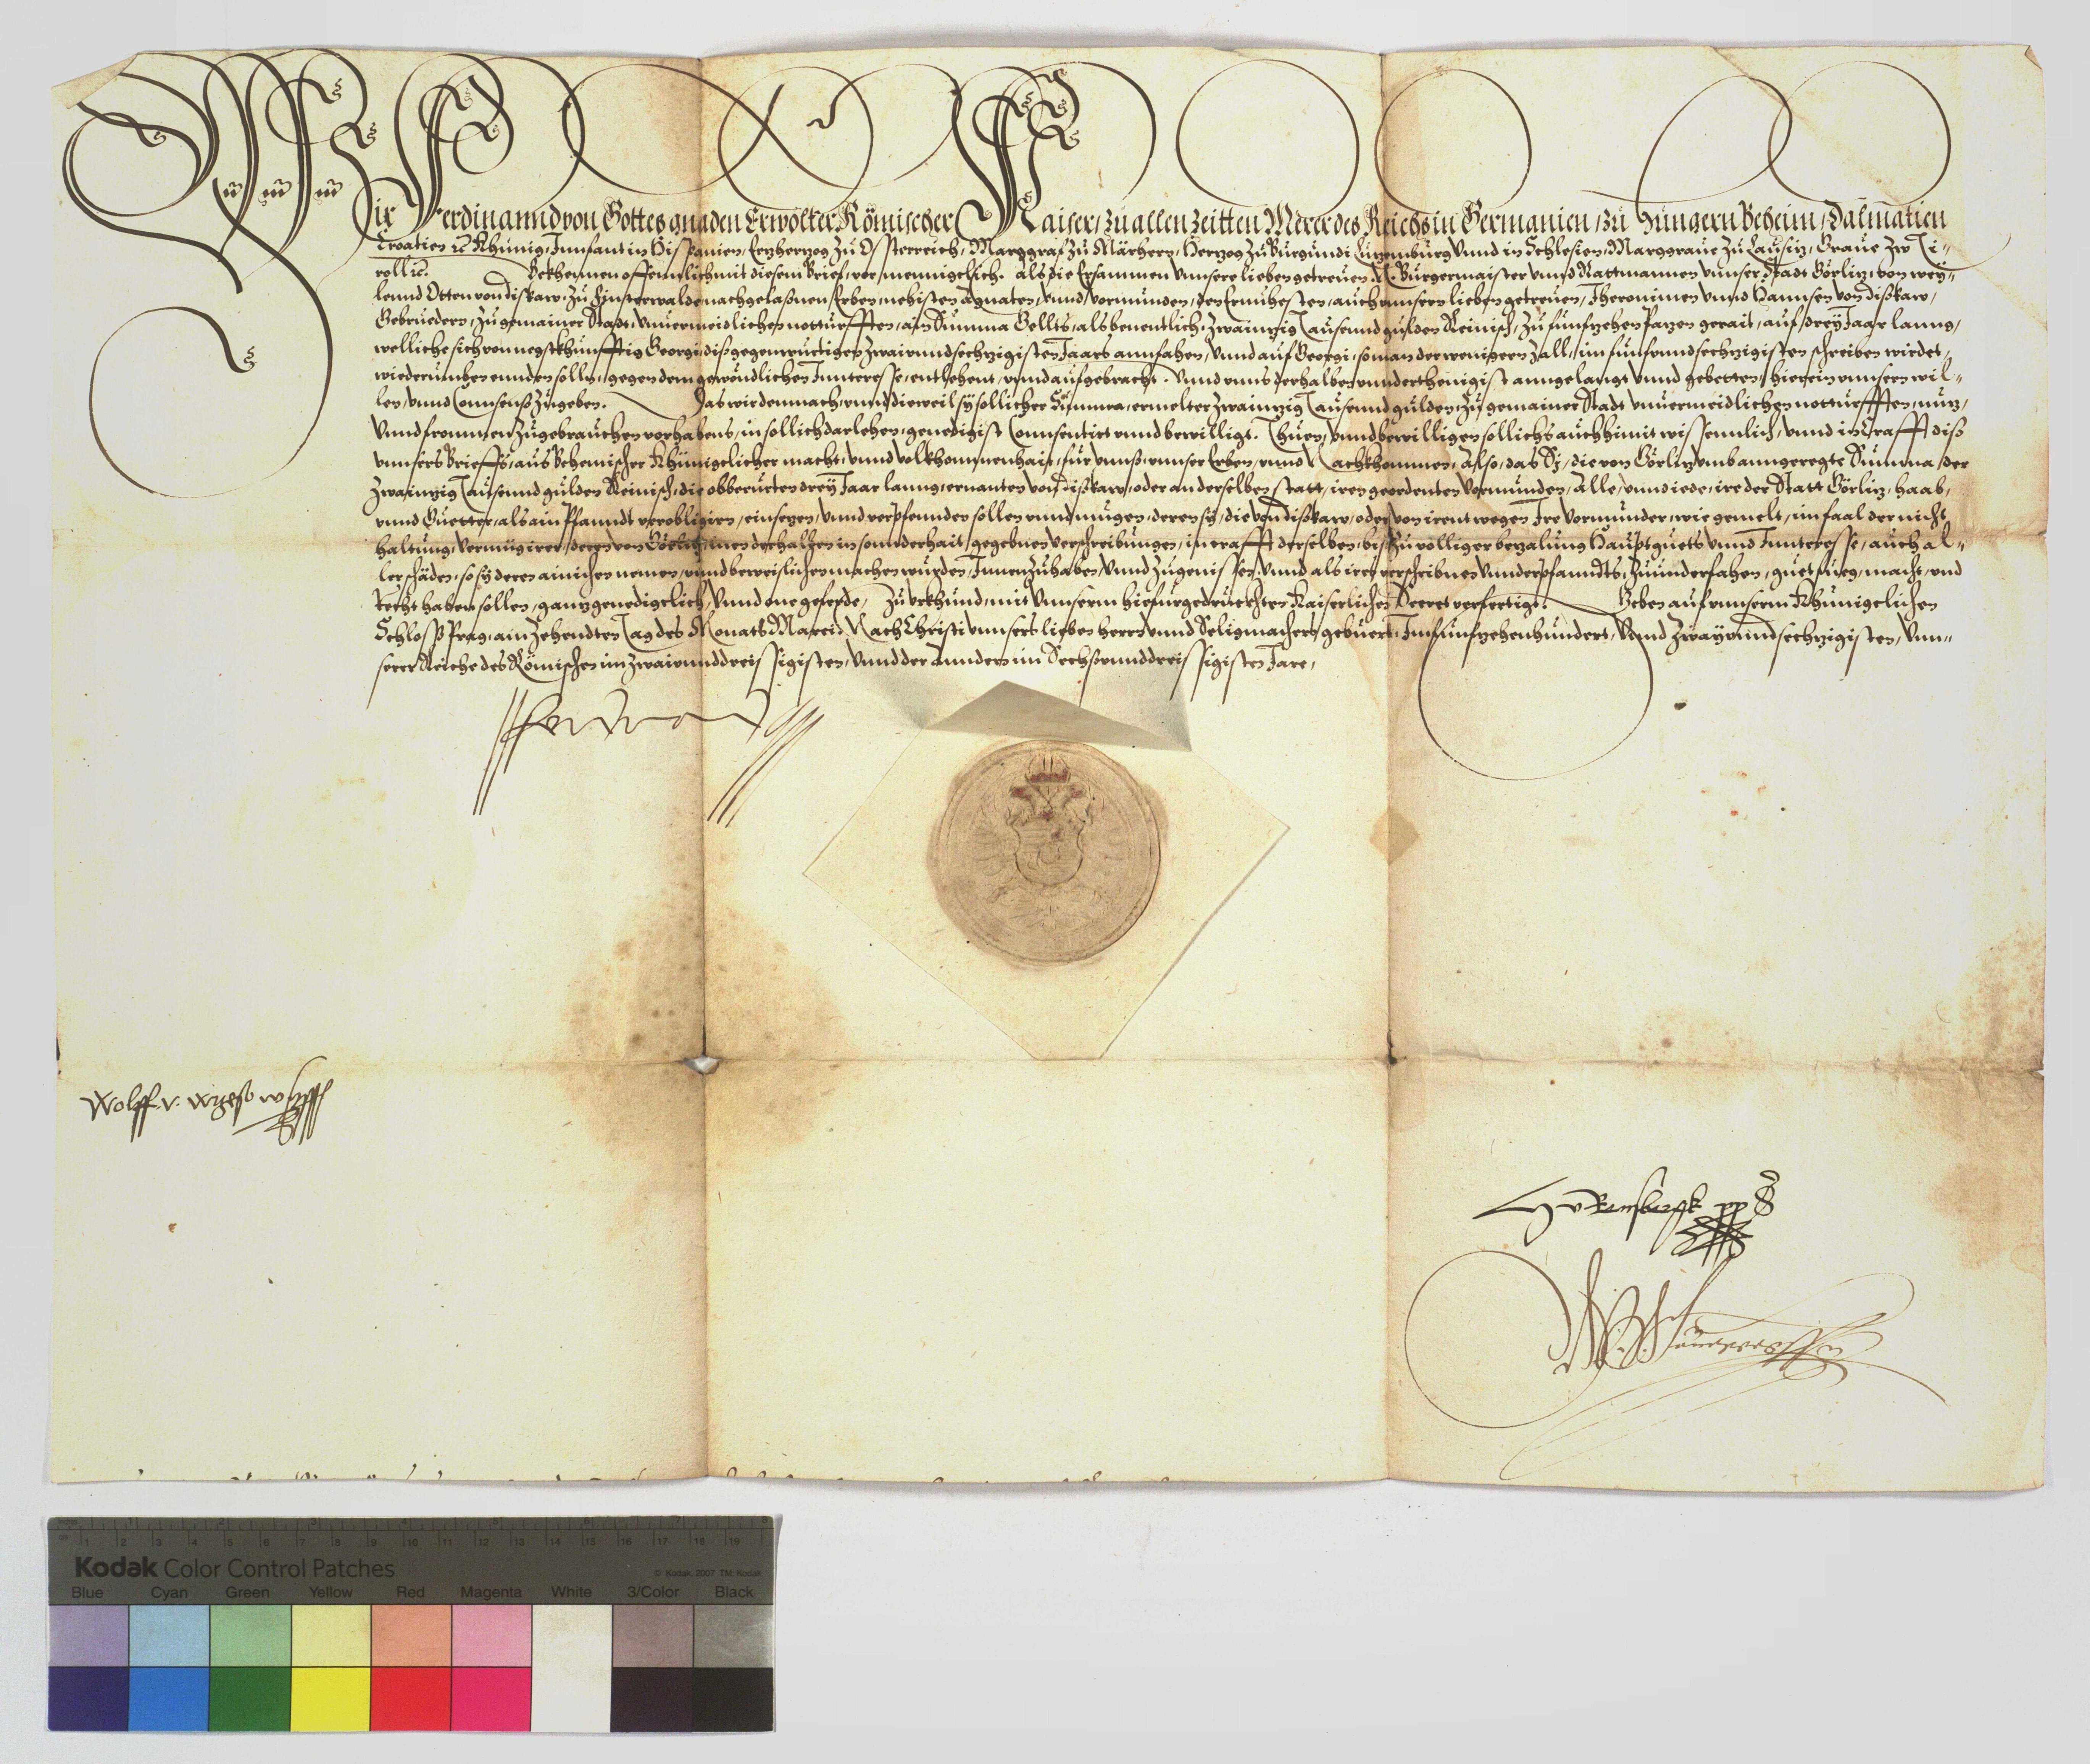 Wir Ferdinannd von Gottes gnaden Erwölter Römischer Kaiser, zu allen zeitten Merer des Reichs in Germanien, zu Hungern Beheim, Dalmatien
Croatien Khünig, Innfant in Hispanien, Ertzhertzog zu Osterreich, Marggraf zu Märhern, Hertzog zu Burgundi Lutzemburg Vnnd in Schlesien, Marggraue zu Lausitz, Graue zw Ti-
roll Bekhennen offennlich mit diesem brief, vor mennigclich. als die Ersammen vnnsere lieben getreuen N. Burgermaister vnnd Rattmannen vnnser Stadt Görlitz, von wey-
lennd Otten von Dißkaw, zu Finsterwalde nachgelaßnen Erben, nehisten Agnaten, vnnd Vormunden, den Ernuhesten, auch vnnsern lieben getreuen, Iheronimen vnnd Hannsen von Dißkaw,
Gebruedern, zu gemainer Stadt, vnuermeidlichen notturfften, ain Summa Gellts, als benentlich, zwaintzig Tausennd gulden Reinisch, zu funfzehen Patzen gerait, auf drey Jaar lanng,
welliche sich von negstkhunfftig Georgi, diß gegenwurtigen zwaivnndsechtzigisten Jaars annfahen, Vnnd auf Georgi, so man der wenigern zall, im funfvnndsechtzigisten schreiben wirdet,
wiederumben ennden sollen, gegen dem gewöndlichen Innteresse, entlehent, vnnd aufgebracht. Vnnd vnns derhalben vnnderthenigist anngelangt vnnd gebetten, hierein vnnsern wil-
len, vnnd Connsenß zugeben. Das wir demnach, vnnd dieweil sy sollicher Summa, ermelter zwaintzig Tausennd gulden, zu gemainer Stadt vnuermeidlichen notturfften, nutz,
Vnnd frommen zugebrauchen vorhabens, in sollich darlehen, genedigist Connsentirt vnnd bewilligt. Thuen, Vnnd bewilligen sollichs auch hiemit wissenntlich, vnnd in Crafft diß
vnnsers Brieffs, aus Behemischer Khünigclicher macht, vnnd volkhommenhait, für vnnß, vnnser Erben, vnnd Nachkhommen, Also, das Sy, die von Görlitz vmb anngeregte Summa, der
zwaintzig Tausennd gulden Reinisch, die obberurten drey Jaar lanng, ernanten von Dißkaw, oder an derselben statt, iren geordenten Vormunden, Alle, vnnd iede, ire der Statt Görlitz, haab,
vnnd Guetter, als ain Pfanndt verobligirn, einsetzen, Vnnd verpfennden sollen vnnd mugen, deren sy, die von Dißkaw, oder von irent wegen Ire Vormunder, wie gemelt, im faal der nicht
haltung, vermüg irer, deren von Görlitz, inen derhalben in sonnderhait, gegebnen verschreibungen, in crafft derselben, biß zu völliger betzalung Hauptguets vnnd Innteresse, auch al-
ler schäden, so sy deren ainichen nemen, vnnd beweislichen machen wurden, Innenzuhaben, Vnnd zugeniessen, Vnnd als iren verschribnen Vnnderpfanndts, zuunderfahen, guet fueg, macht, vnd
Recht haben sollen, gantz genedigclich, Vnnd one geferde, Zu vrkhund, mit Vnnserm hiefurgedruckhten Kaiserlichen Secret verfertigt. Geben auf vnnserm Khünigclichen
Schloss Prag, am zehendten Tag des Monats Marci, Nach Christi vnnsers lieben herrn vnnd Seligmachers geburt, Im funfzehenhundert, Vnnd zwayvnndsechtzigisten, Vnn-
serer Reiche des Römischen im zwaivnnddreissigisten, Vnnd der Anndern im Sechsvnnddreissigisten Jare,
Ferdinand
Wolff. v. Wrzesowitz